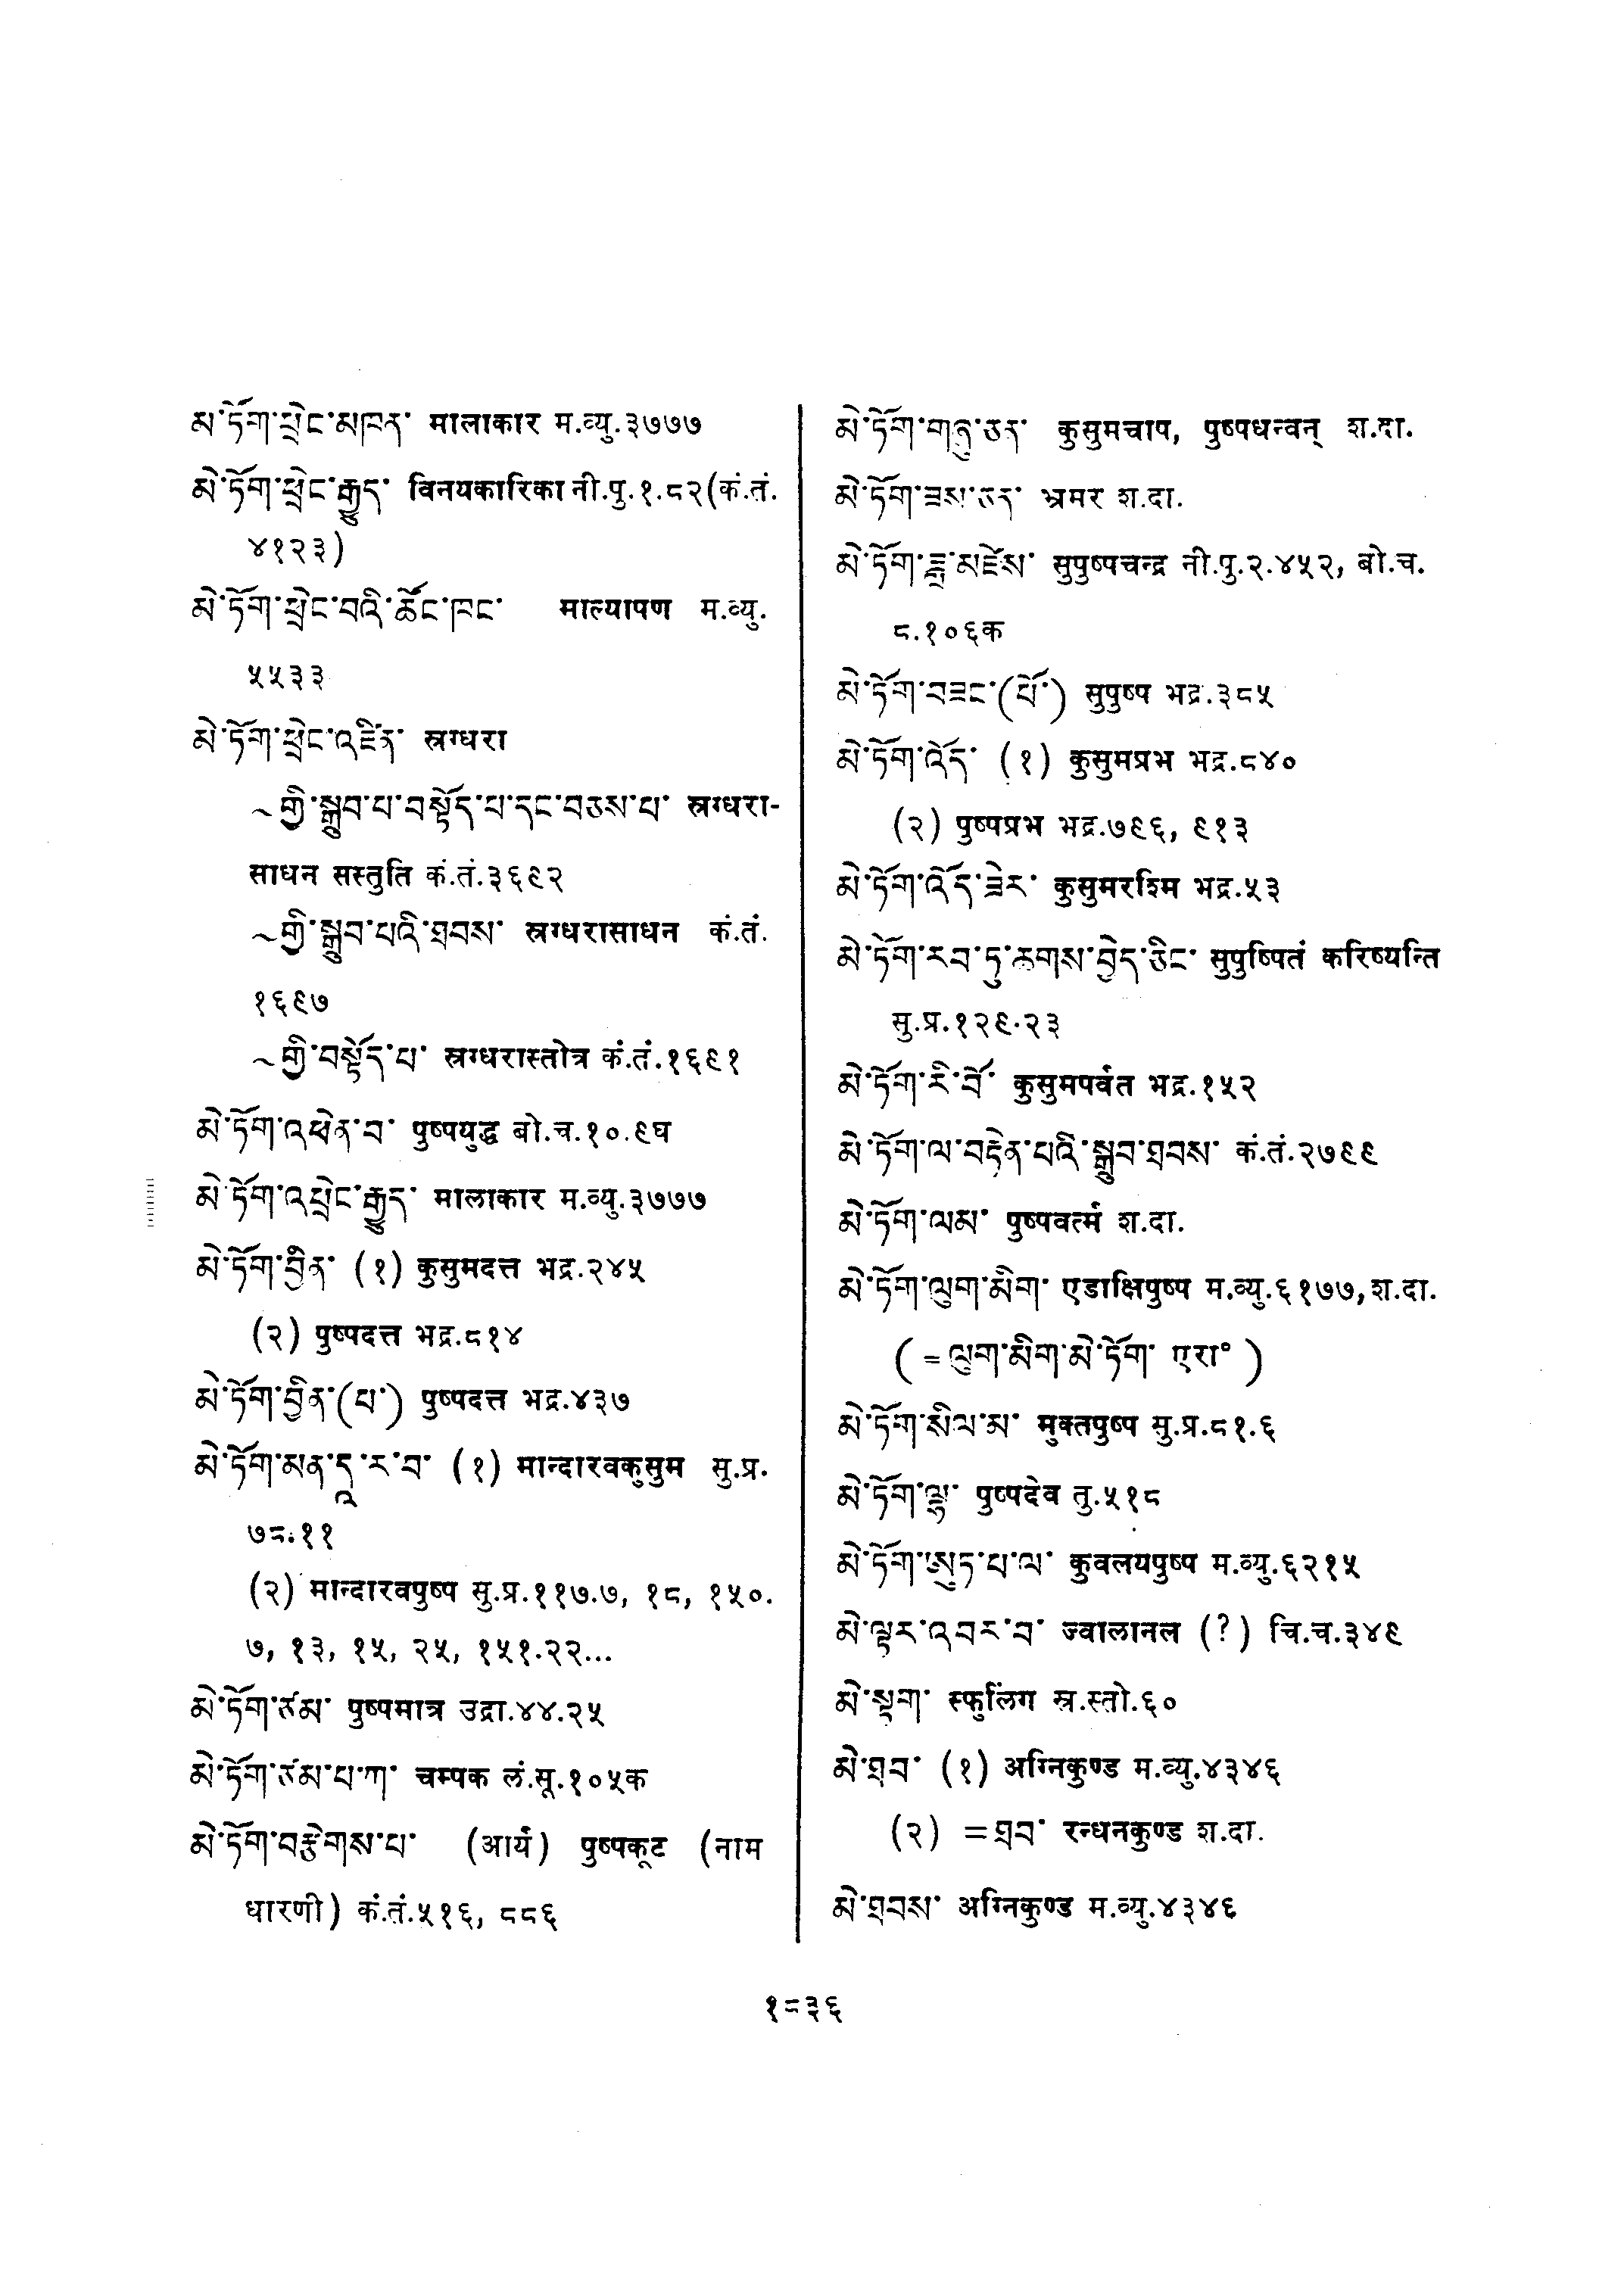 མེ་ཏོག་ཕྲེང་མཁན་ मालाकार म.व्यु.३७७७
མེ་ཏོག་ཕྲེང་རྒྱུད་ विनयकारिका नी.पु.१.८२(कं.तं.
४१२३)
མེ་ཏོག་ཕྲེང་བའི་ཚོང་ཁང་ माल्यापण म.व्यु.
५५३३
མེ་ཏོག་ཕྲེང་འཛིན་ स्रग्धरा
~གྱི་སྒྲུབ་པ་བསྟོད་པ་དང་བཅས་པ་ स्रग्धरा-
साधन सस्तुति कं.तं.३६९२
~གྱི་སྒྲུབ་པའི་ཐབས་ स्रग्धरासाधन कं.तं.
१६९७
~གྱི་བསྟོད་པ་ स्रग्धरास्तोत्र कं.तं.१६९१
མེ་ཏོག་འཕེན་བ་ पुष्पयुद्ध बो.च.१०.९घ
མེ་ཏོག་འཕྲེང་རྒྱུད་ मालाकार म.व्यु.३७७७
མེ་ཏོག་བྱིན་ (१) कुसुमदत्त भद्र.२४५
(२) पुष्पदत्त भद्र.८१४
མེ་ཏོག་བྱིན་(པ་) पुष्पदत्त भद्र.४३७
མེ་ཏོག་མན་དཱ་ར་བ་ (१) मान्दारवकुसुम सु.प्र.
७८.११
(२) मान्दारवपुष्प सु.प्र.११७.७, १८, १५०.
७, १३, १५, २५, १५१.२२...
མེ་ཏོག་ཙམ་ पुष्पमात्र उद्रा.४४.२५
མེ་ཏོག་ཙམ་པ་ཀ་ चम्पक लं.सू.१०५क
མེ་ཏོག་བརྩེགས་པ་ (आर्य) पुष्पकूट (नाम
धारणी) कं.तं.५१६, ८८६
མེ་ཏོག་གཞུ་ཅན་ कुसुमचाप, पुष्पधन्वन् श.दा.
མེ་ཏོག་ཟས་ཅན་ भ्रमर श.दा.
མེ་ཏོག་ཟླ་མཛེས་ सुपुष्पचन्द्र नी.पु.२.४५२, बो.च.
८.१०६क
མེ་ཏོག་བཟང་(པོ་) सुपुष्प भद्र.३८५
མེ་ཏོག་འོད་ (१) कुसुमप्रभ भद्र.८४०
(२) पुष्पप्रभ भद्र.७९६, ९१३
མེ་ཏོག་འོད་ཟེར་ कुसुमरश्मि भद्र.५३
མེ་ཏོག་རབ་ཏུ་ཆགས་བྱེད་ཅིང་ सुपुष्पितं करिष्यन्ति
सु.प्र.१२९.२३
མེ་ཏོག་རི་བོ་ कुसुमपर्वत भद्र.१५२
མེ་ཏོག་ལ་བརྟེན་པའི་སྒྲུབ་ཐབས་ कं.तं.२७९९
མེ་ཏོག་ལམ་ पुष्पवर्त्म श.दा.
མེ་ཏོག་ལུག་མིག་ एडाक्षिपुष्प म.व्यु.६१७७, श.दा.
( = ལུག་མིག་མེ་ཏོག་ एरा° )
མེ་ཏོག་སིལ་མ་ मुक्तपुष्प सु.प्र.८१.६
མེ་ཏོག་ལྷ་ पुष्पदेव तु.५१८
མེ་ཏོག་ཨུཏ་པ་ལ་ कुवलयपुष्प म.व्यु.६२१५
མེ་ལྟར་འབར་བ་ ज्वालानल (?) चि.च.३४९
མེ་སྟག་ स्फुलिंग स्र.स्तो.६०
མེ་ཐབ་ (१) अग्निकुण्ड म.व्यु.४३४६
(२) = ཐབ་ रन्धनकुण्ड श.दा.
མེ་ཐབས་ अग्निकुण्ड म.व्यु.४३४६
१८३६